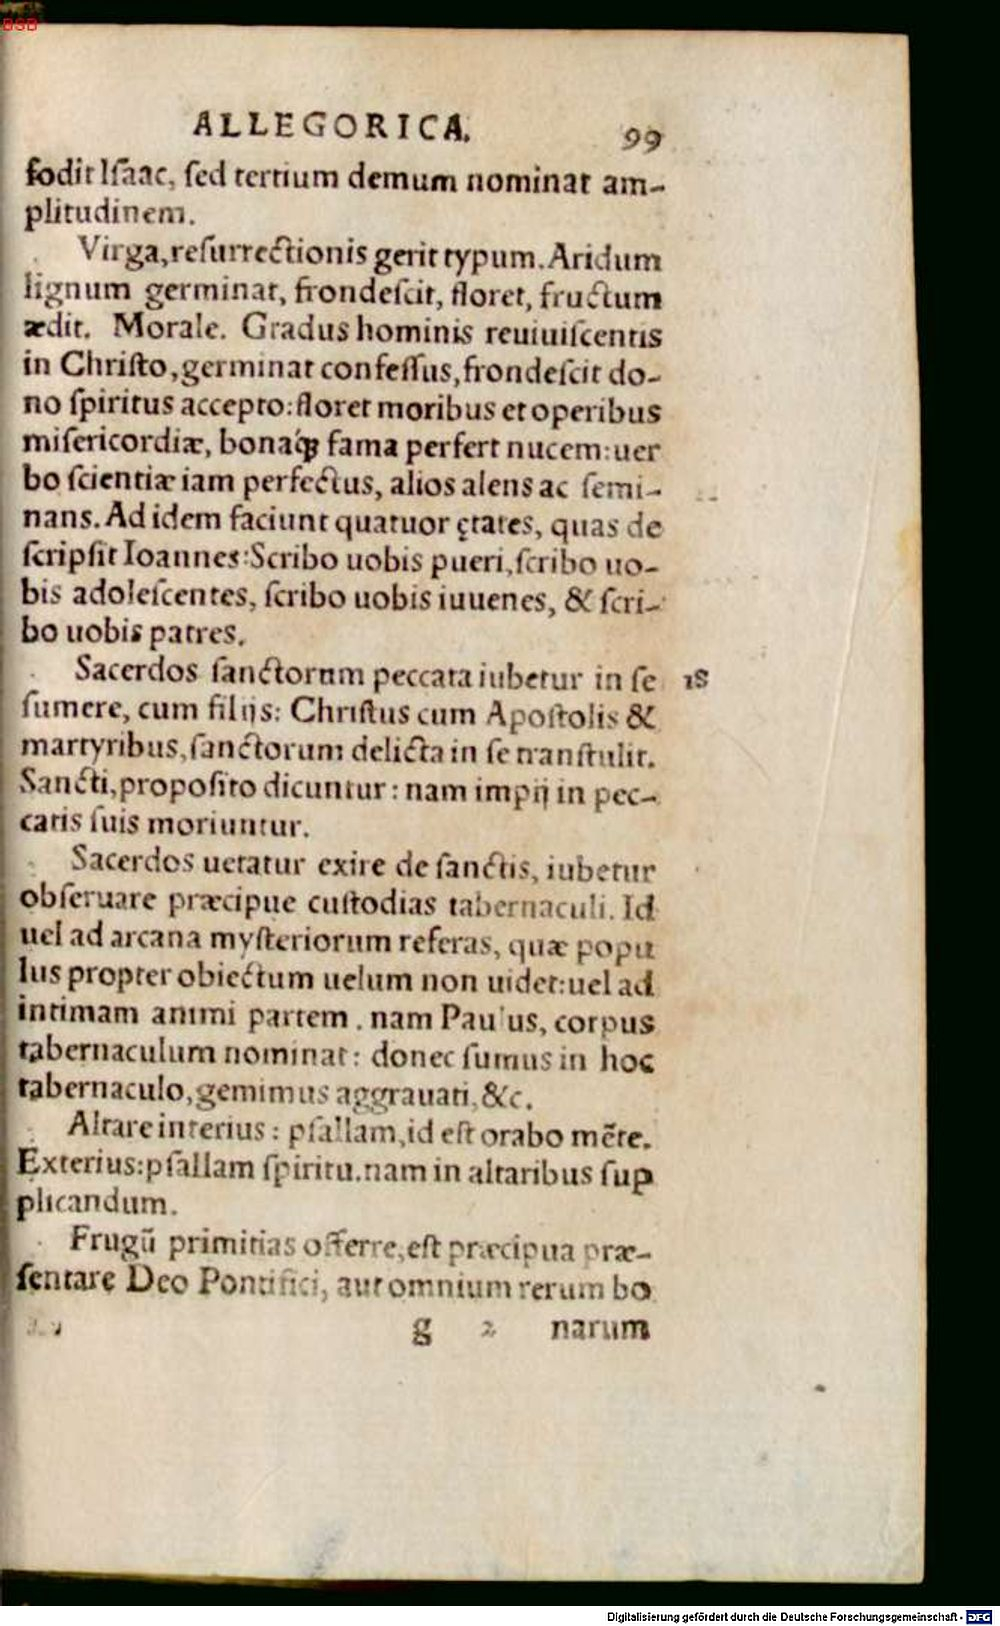 BSB
ALLEGORICA. 99
fodit Iſaac, ſed tertium demum nominat am-
plitudinem.
Virga, reſurrectionis gerit typum. Aridum
lignum germinat, frondeſcit, floret, fructum
ædit. Morale. Gradus hominis reuiuiſcentis
in Chriſto, germinat confeſſus, frondeſcit do-
no ſpiritus accepto: floret moribus et operibus
miſericordiæ, bonaq́ꝫ fama perfert nucem: uer
bo ſcientiæ iam perfectus, alios alens ac ſemi-
nans. Ad idem faciunt quatuor ętates, quas de
ſcripſit Ioannes: Scribo uobis pueri, ſcribo uo-
bis adoleſcentes, ſcribo uobis iuuenes, & ſcri-
bo uobis patres.
Sacerdos ſanctorum peccata iubetur in ſe 18
ſumere, cum filijs: Chriſtus cum Apoſtolis &
martyribus, ſanctorum delicta in ſe tranſtulit.
Sancti, propoſito dicuntur: nam impij in pec-
catis ſuis moriuntur.
Sacerdos uetatur exire de ſanctis, iubetur
obſeruare præcipue cuſtodias tabernaculi. Id
uel ad arcana myſteriorum referas, quæ popu
lus propter obiectum uelum non uidet: uel ad
intimam animi partem. nam Paulus, corpus
tabernaculum nominat: donec ſumus in hoc
tabernaculo, gemimus aggrauati, &c.
Altare interius: pſallam, id eſt orabo mẽte.
Exterius: pſallam ſpiritu. nam in altaribus ſup
plicandum.
Frugũ primitias offerre, eſt præcipua præ-
ſentare Deo Pontifici, aut omnium rerum bo
g 2 narum
Digitalisierung gefördert durch die Deutsche Forschungsgemeinschaft - DFG